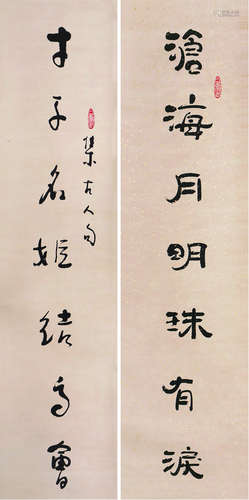 滄海月明珠有淚
才子名姬結高會
集古人句